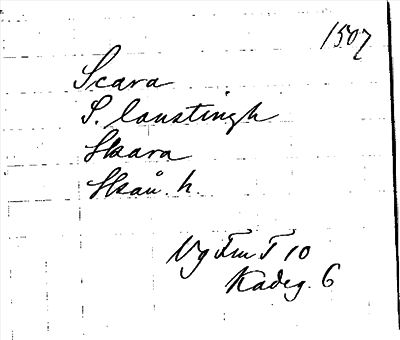 1507
Scara
S. laustingh
Skara
Skån. h.
Vg Fm T 10
Kadeg. 6